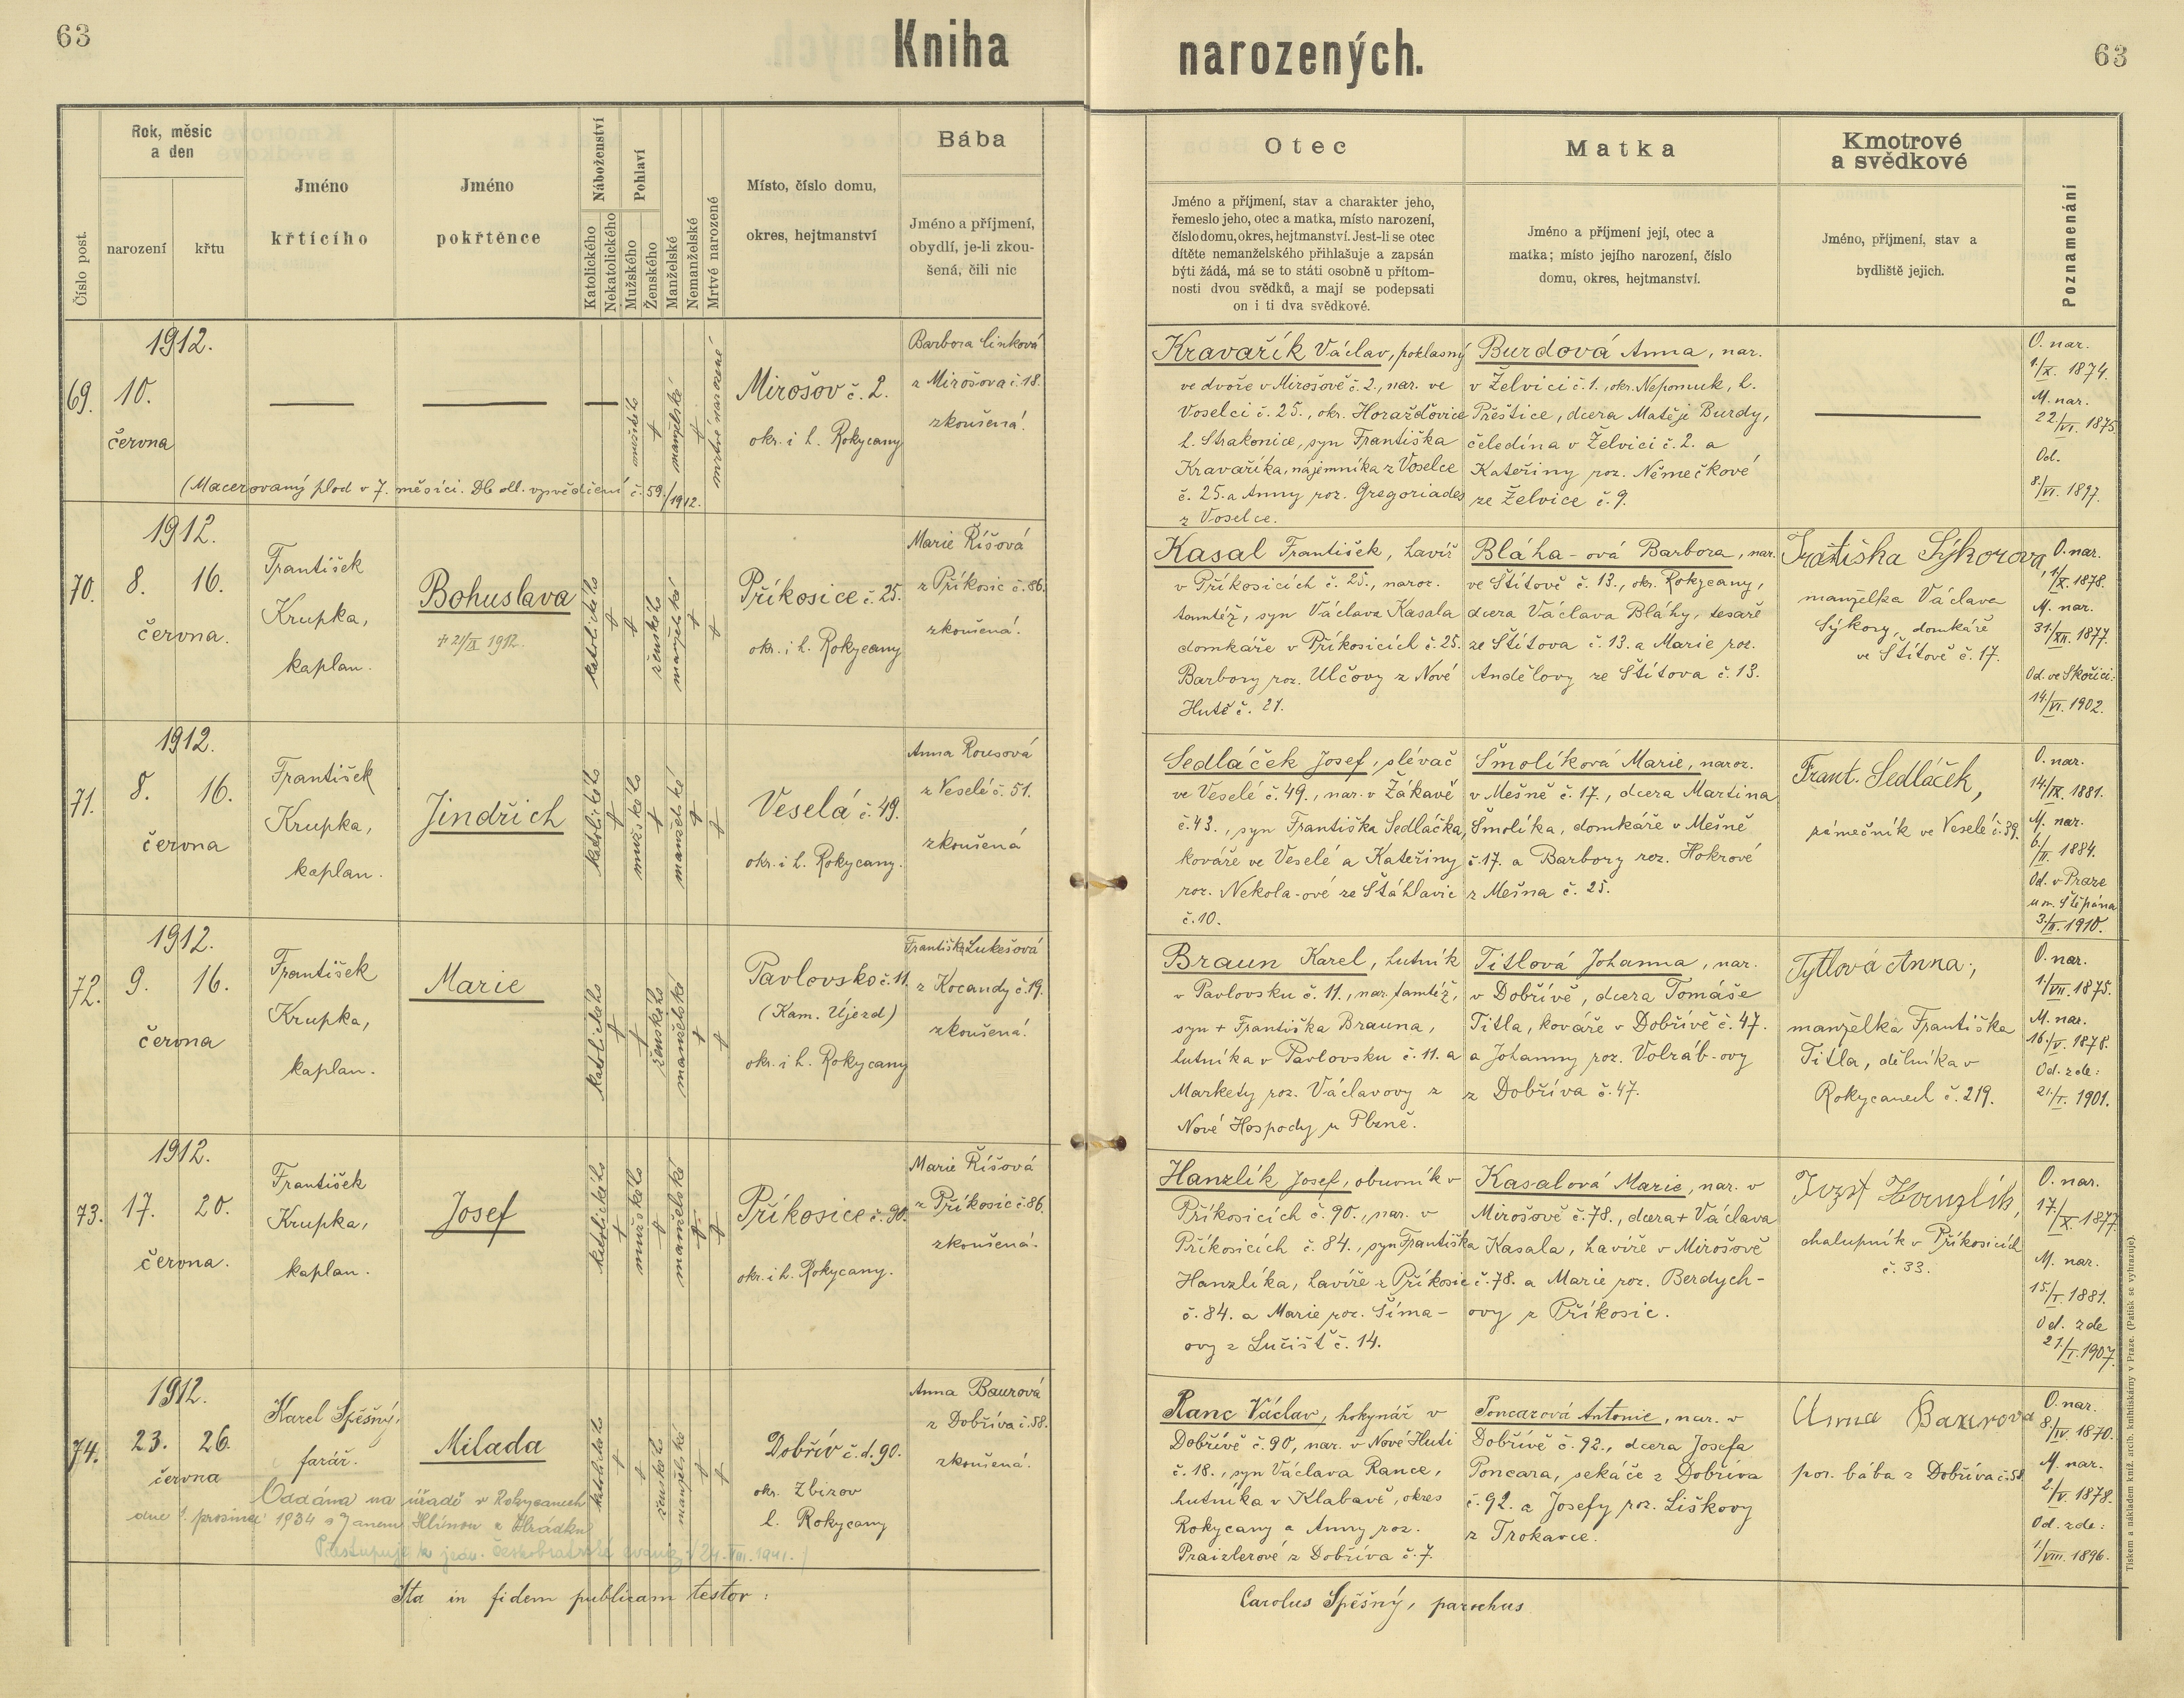 63
Kniha narozených.
63
Číslo post.
Rok, měsíc
a den
narození
křtu
Jméno
křtícího
Jméno
pokřtěnce
Náboženství
Katolického
Nekatolického
Pohlaví
Mužského
Ženského
Manželské
Nemanželské
Mrtvé narozené
Místo, číslo domu,
okres, hejtmanství
Bába
Jméno a příjmení,
obydlí, je-li zkou-
šená, čili nic
Otec
Jméno a příjmení, stav a charakter jeho,
řemeslo jeho, otec a matka, místo narození,
číslo domu, okres, hejtmanství. Jest-li se otec
dítěte nemanželského přihlašuje a zapsán
býti žádá, má se to státi osobně u přítom-
nosti dvou svědků, a mají se podepsati
on i ti dva svědkové.
Matka
Jméno a příjmení její, otec a
matka; místo jejího narození, číslo
domu, okres, hejtmanství.
Kmotrové
a svědkové
Jméno, příjmení, stav a
bydliště jejich.
Poznamenání
1912.
69.
10.
června
mužského
manželské
mrtvě narozené
(Macerovaný plod v 7. měsíci. Dle ohl. vysvědčení č. 59./1912.
Mirošov č. 2.
okr. i h. Rokycany
Barbora Linková
z Mirošova č. 18.
zkoušená!
Kravařík Václav, poklasný
ve dvoře v Mirošově č. 2., nar. ve
Voselci č. 25., okr. Horažďovice
h. Strakonice, syn Františka
Kravaříka, nájemníka z Voselce
č. 25. a Anny roz. Gregoriades
z Voselce.
Burdová Anna, nar.
v Želvici č. 1., okr. Nepomuk, h.
Přeštice, dcera Matěje Burdy,
čeledína v Želvici č. 2. a
Kateřiny roz. Němečkové
ze Želvice č. 9.
O. nar.
1./X. 1874.
M. nar.
22/VI. 1875.
Od.
8./VI. 1897.
1912.
70.
8.
16.
června.
František
Krupka,
kaplan.
Bohuslava
+ 21/IX 1912.
katolického
ženského
manželské
Příkosice č. 25.
okr. i h. Rokycany
Marie Říšová
z Příkosic č. 86.
zkoušená.
Kasal František, havíř
v Příkosicích č. 25., naroz.
tamtéž, syn Václava Kasala
domkáře v Příkosicích č. 25.
Barbory roz. Ulčovy z Nové
Hutě č. 21.
Bláha-ová Barbora, nar.
ve Štítově č. 13., okr. Rokycany,
dcera Václava Bláhy, tesaře
ze Štítova č. 13. a Marie roz.
Andělovy ze Štítova č. 13.
Františka Sýkorova,
manželka Václava
Sýkory, domkáře
ve Štítově č. 17.
O. nar.
1/X. 1878.
M. nar.
31/XII. 1877.
Od. ve Skořici:
14/VI. 1902.
1912.
71.
8.
16.
června
František
Krupka,
kaplan.
Jindřich
katolického
mužského
manželské
Veselá č. 49.
okr. i h. Rokycany.
Anna Rousová
z Veselé č. 51.
zkoušená
Sedláček Josef, slévač
ve Veselé č. 49., nar. v Žákavě
č. 43., syn Františka Sedláčka,
kováře ve Veselé a Kateřiny
roz. Nekola-ové ze Štáhlavic
č. 10.
Šmolíková Marie, naroz.
v Mešně č. 17., dcera Martina
Šmolíka, domkáře v Mešně
č. 17. a Barbory roz. Hokrové
z Mešna č. 25.
Frant. Sedláček,
zámečník ve Veselé č. 39.
O. nar.
14/IX. 1881.
M. nar.
6./II. 1884.
Od. v Praze
u sv. Štěpána
3./II. 1910.
1912.
72.
9.
16.
června
František
Krupka,
kaplan.
Marie
katolického
ženského
manželské
Pavlovsko č. 11.
(Kam. Újezd)
okr. i h. Rokycany
Františka Lukešová
z Kocandy č. 19.
zkoušená!
Braun Karel, hutník
v Pavlovsku č. 11., nar. tamtéž,
syn + Františka Brauna,
hutníka v Pavlovsku č. 11. a
Markety roz. Václavovy z
Nové Hospody u Plzně.
Titlová Johanna, nar.
v Dobřívě, dcera Tomáše
Titla, kováře v Dobřívě č. 47.
a Johanny roz. Volráb-ovy
z Dobříva č. 47.
Tytlová Anna,
manželka Františka
Titla, dělníka v
Rokycanech č. 219.
O. nar.
1/VII. 1875.
M. nar.
16./V. 1878.
Od. zde:
21./I. 1901.
1912.
73.
17.
20.
června.
František
Krupka,
kaplan.
Josef
katolického
mužského
manželské
Příkosice č. 90.
okr. i h. Rokycany.
Marie Říšová
z Příkosic č. 86.
zkoušená.
Hanzlík Josef, obuvník v
Příkosicích č. 90., nar. v
Příkosicích č. 84., syn Františka
Hanzlíka, havíře z Příkosic
č. 84. a Marie roz. Šíma-
ovy z Lučišť č. 14.
Kasalová Marie, nar. v
Mirošově č. 78., dcera + Václava
Kasala, havíře v Mirošově
č. 78. a Marie roz. Berdych-
ovy z Příkosic.
Josef Hanzlík,
chalupník v Příkosicích
č. 33.
O. nar.
17./X. 1877
M. nar.
15./I. 1881.
Od. zde
21./I. 1907.
1912.
74.
23.
26.
června
Karel Spěšný,
farář.
Milada
katolického
ženského
manželské
Oddána na úřadě v Rokycanech
dne 1. prosince 1934 s Janem Hlinou z Hrádku
Přestupuje k jedn. českobratrské evang. 24. VIII. 1941.
Dobřív č. d. 90.
okr. Zbirov
h. Rokycany
Anna Baurová
z Dobříva č. 58.
zkoušená.
Ranc Václav, hokynář v
Dobřívě č. 90, nar. v Nové Huti
č. 18., syn Václava Rance,
hutníka v Klabavě, okres
Rokycany a Anny roz.
Praizlerové z Dobříva č. 7.
Poncarová Antonie, nar. v
Dobřívě č. 92., dcera Josefa
Poncara, sekáče z Dobříva
č. 92. a Josefy roz. Liškovy
z Trokavce.
Anna Baurova
por. bába z Dobříva č. 58
O. nar.
8/IV. 1870.
M. nar.
2/V. 1878.
Od. zde:
1/VIII. 1896.
Ita in fidem publicam testor:
Carolus Spěšný, parochus
Tiskem a nákladem kníž. arcib. knihtiskárny v Praze. (Patisk se vyhrazuje).